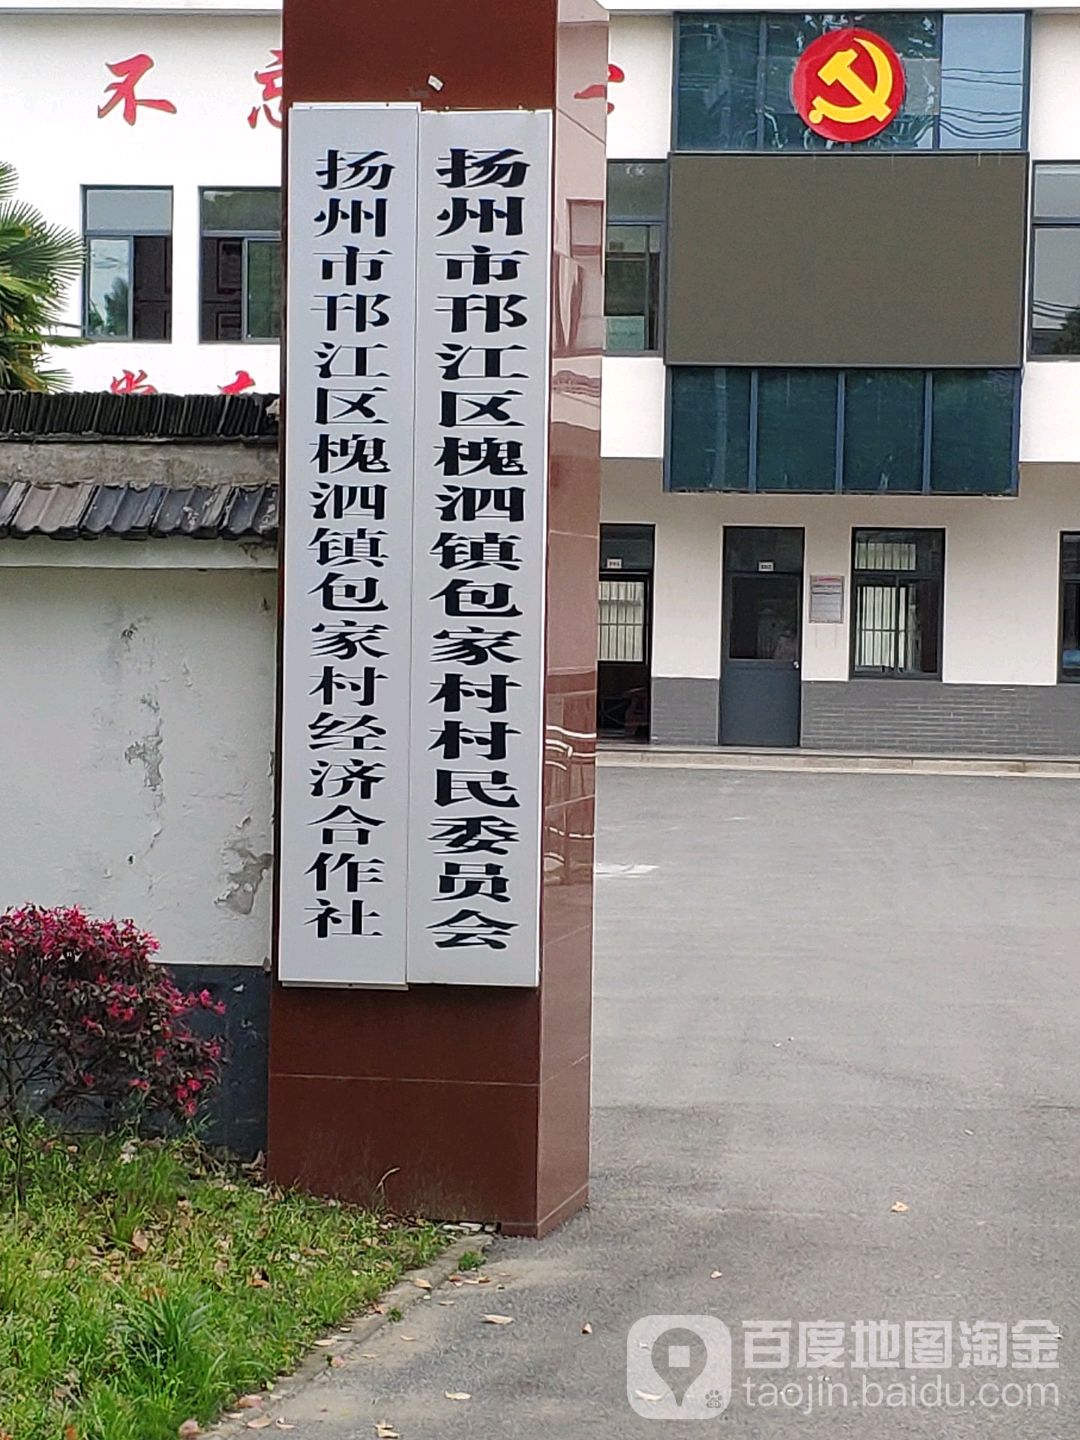 不忘
扬州市邗江区槐泗镇包家村经济合作社
扬州市邗江区槐泗镇包家村村民委员会
百度地图淘金
taojin.baidu.com